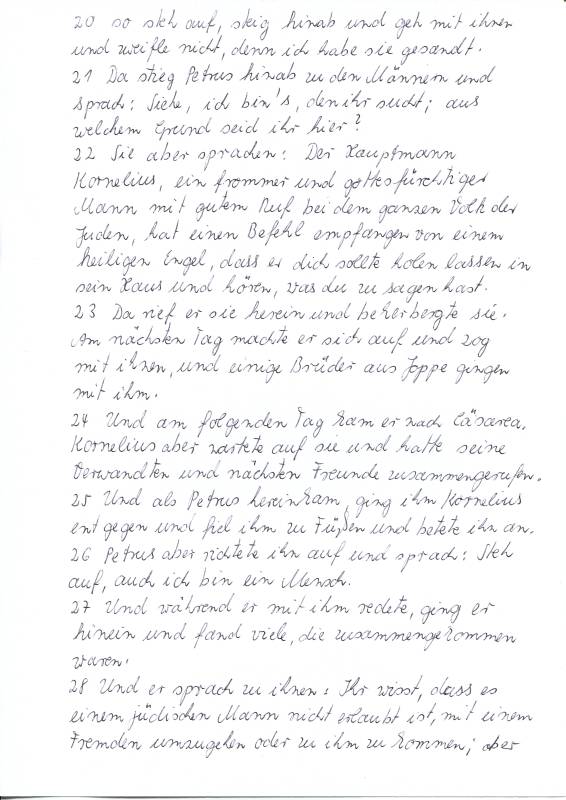 20 so steh auf, steig hinab und geh mit ihnen
und zweifle nicht, denn ich habe sie gesandt.
21 Da stieg Petrus hinab zu den Männern und
sprach: Siehe, ich bin's, den ihr sucht; aus
welchem Grund seid ihr hier?
22 Sie aber sprachen: Der Hauptmann
Kornelius, ein frommer und gottesfürchtiger
Mann mit gutem Ruf bei dem ganzen Volk der
Juden, hat einen Befehl empfangen von einem
heiligen Engel, dass er dich sollte holen lassen in
sein Haus und hören, was du zu sagen hast.
23 Da rief er sie herein und beherbergte sie.
Am nächsten Tag machte er sich auf und zog
mit ihnen, und einige Brüder aus Joppe gingen
mit ihm.
24 Und am folgenden Tag kam er nach Cäsarea.
Kornelius aber wartete auf sie und hatte seine
Verwandten und nächsten Freunde zusammengerufen.
25 Und als Petrus hereinkam, ging ihm Kornelius
entgegen und fiel ihm zu Füßen und betete ihn an.
26 Petrus aber richtete ihn auf und sprach: Steh
auf, auch ich bin ein Mensch.
27 Und während er mit ihm redete, ging er
hinein und fand viele, die zusammengekommen
waren.
28 Und er sprach zu ihnen: Ihr wisst, dass es
einem jüdischen Mann nicht erlaubt ist, mit einem
Fremden umzugehen oder zu ihm zu kommen; aber